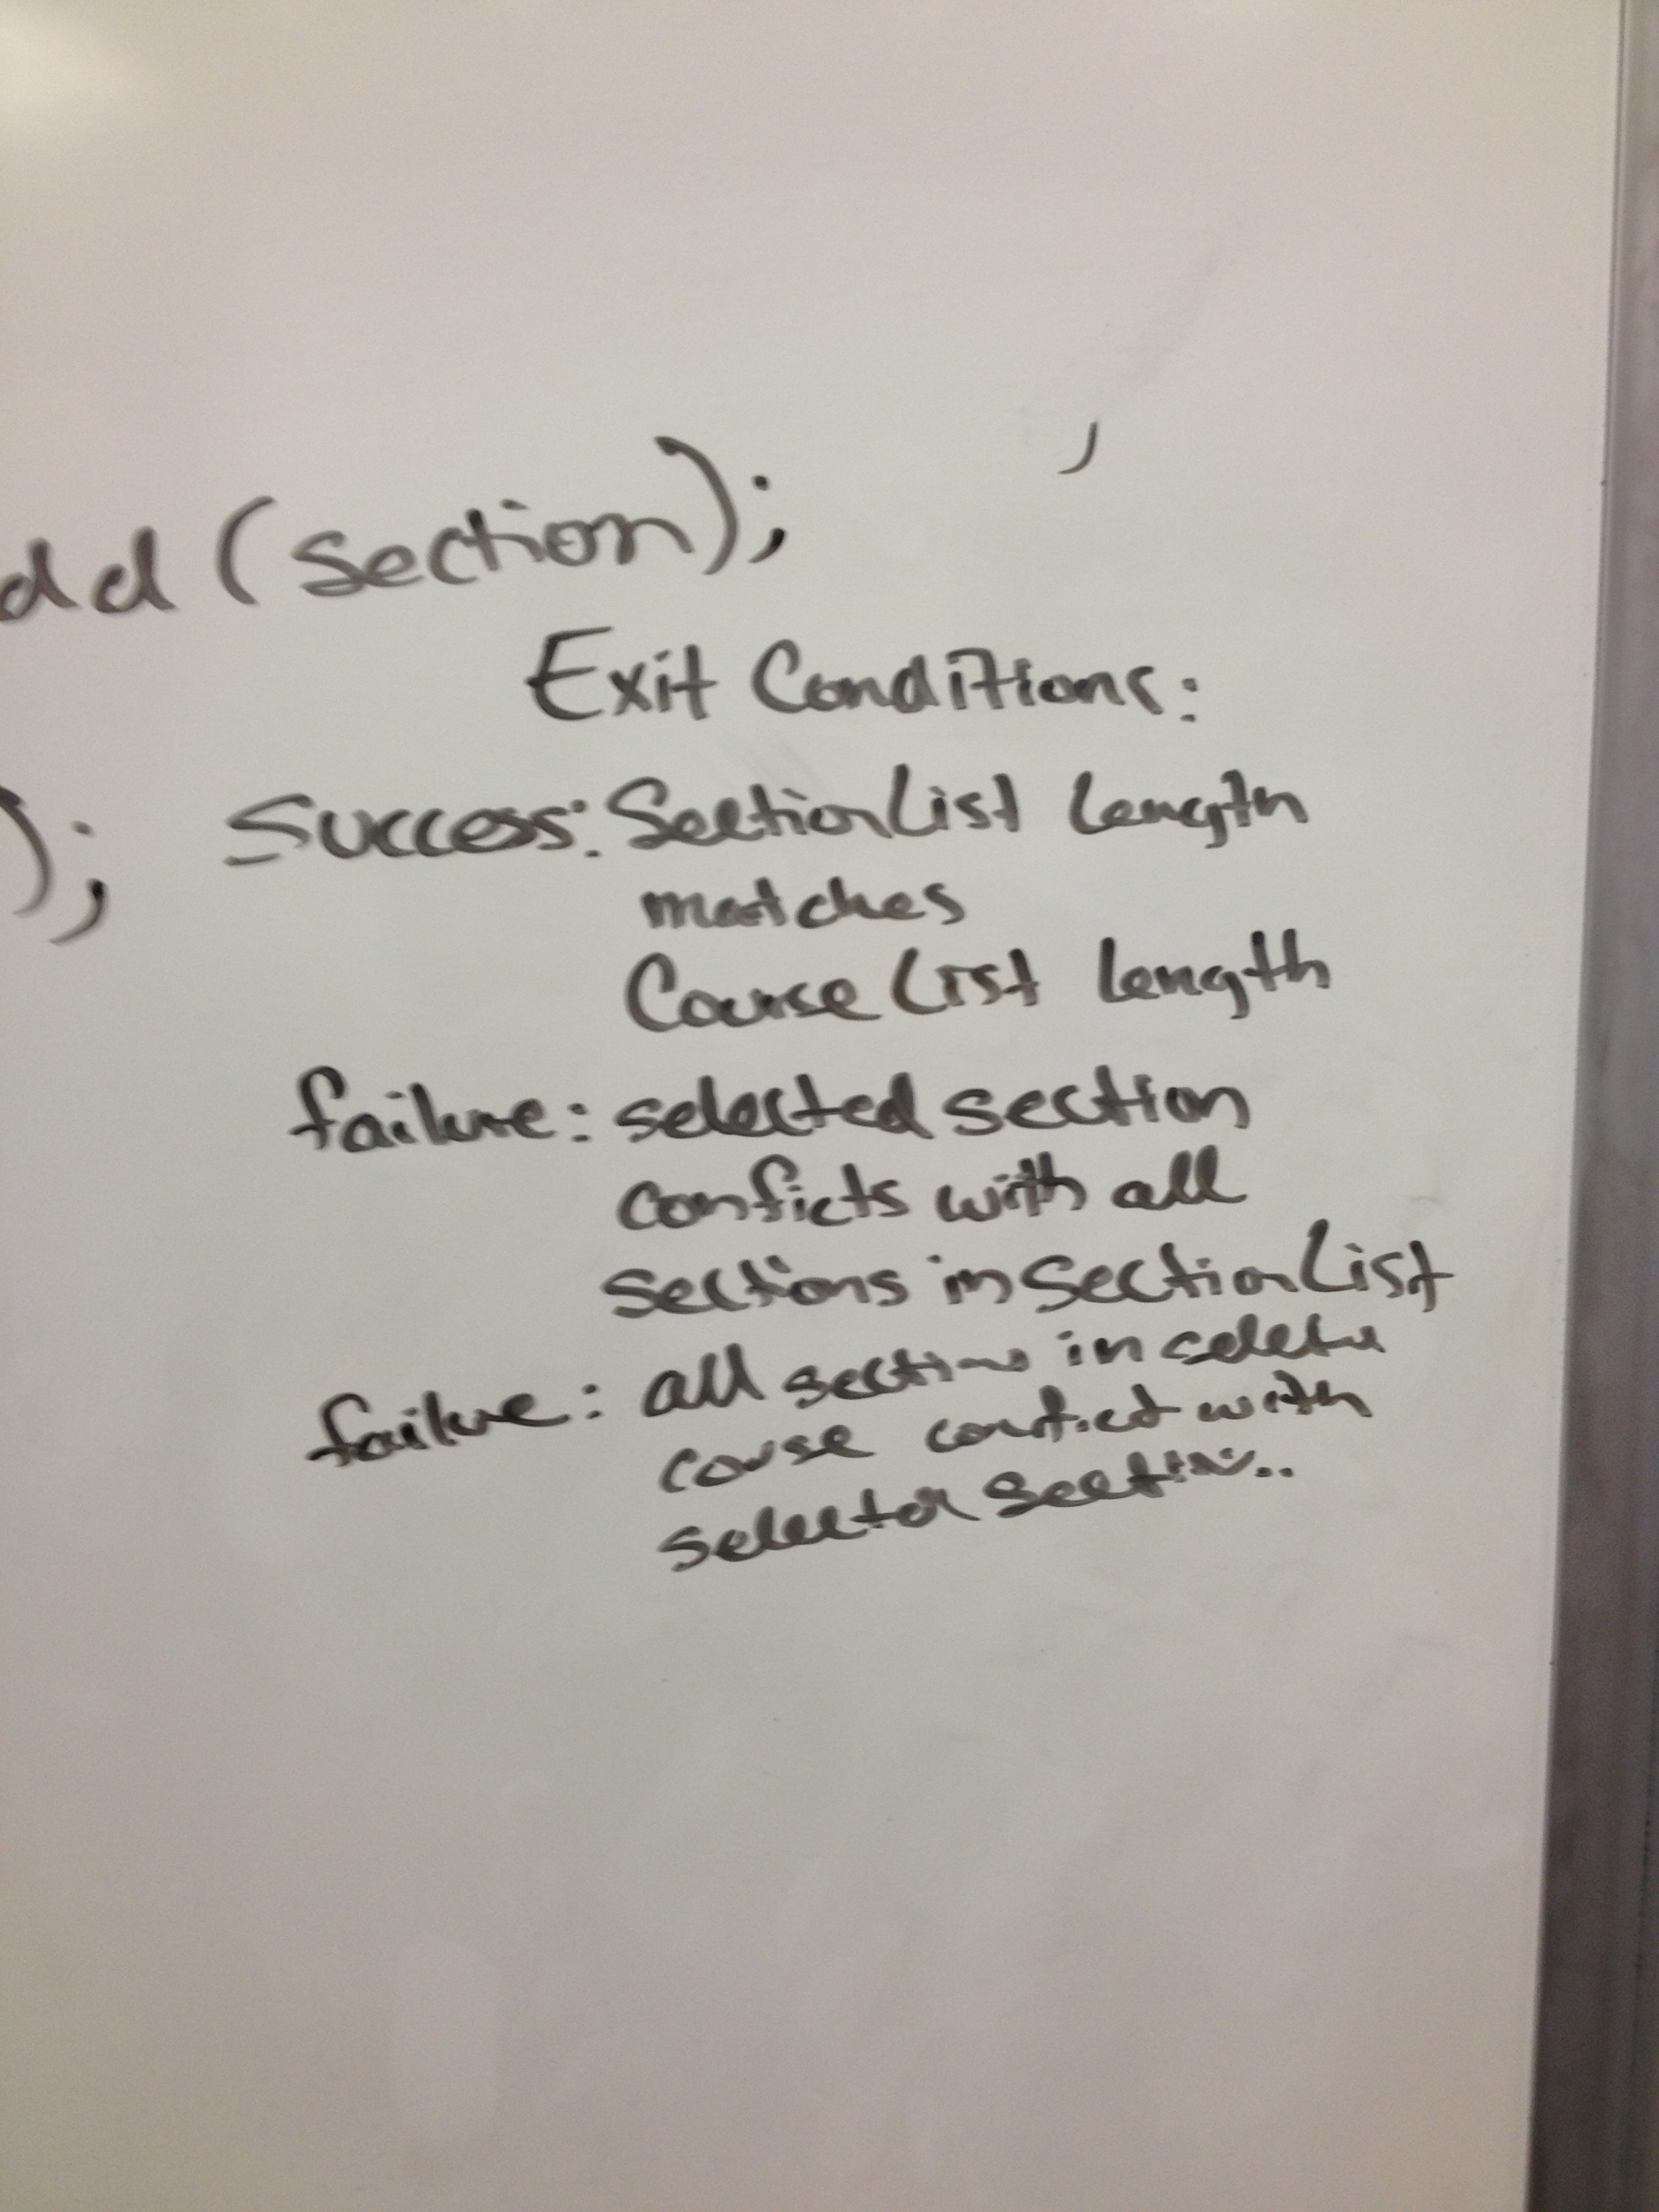 dd (section);
Exit Conditions:
); Success: SectionList length
matches
CourseList length
failure: selected section
conficts with all
sections in SectionList
failure: all section in
course confict with
section